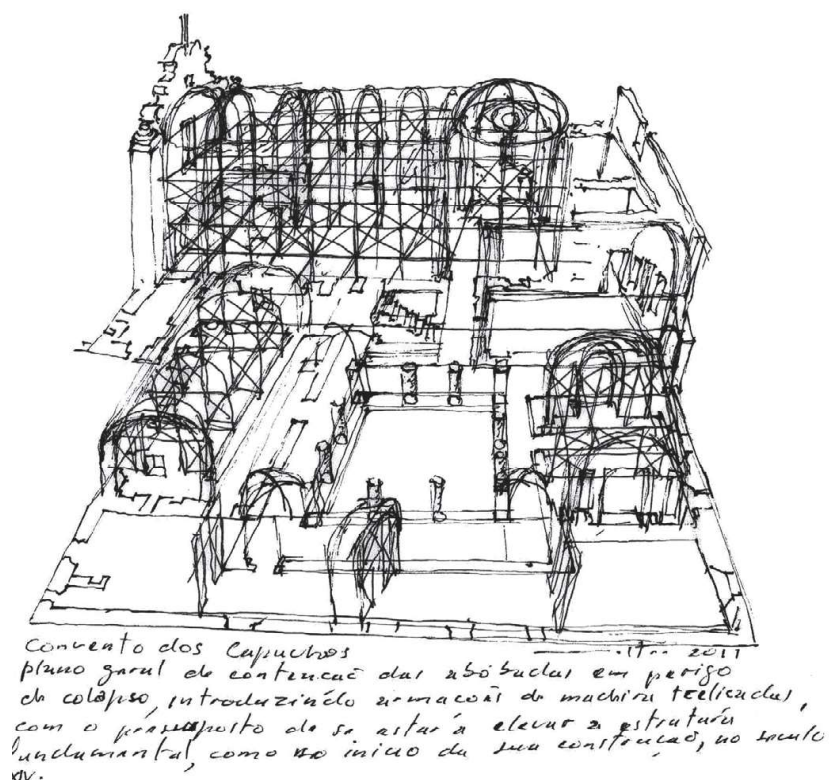 Convento dos Capuchos 2011
plano geral de contencaõ das abóbadas em perigo
de colapso, introduzindo armacoẽs de madeira trelicadas,
com o pressuposto de se estar a elevar a estrutura
fundamental, como no inicio da sua construcaõ, no seculo
XV.